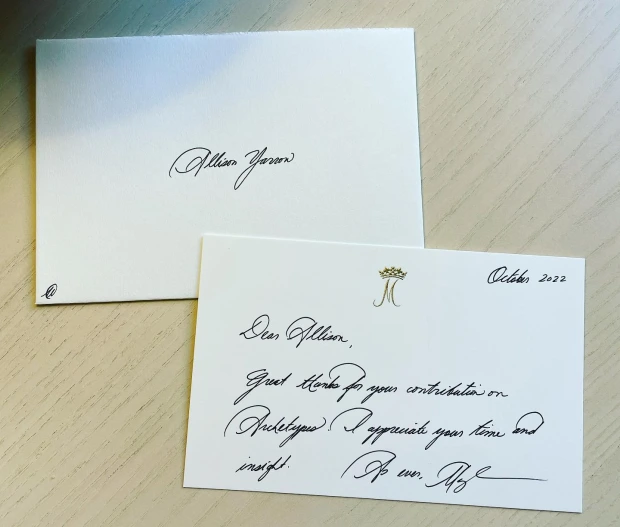 Allison Yarrow
M
October 2022
Dear Allison,
Great thanks for your contribution on
Archetypes! I appreciate your time and
insight.
As ever,